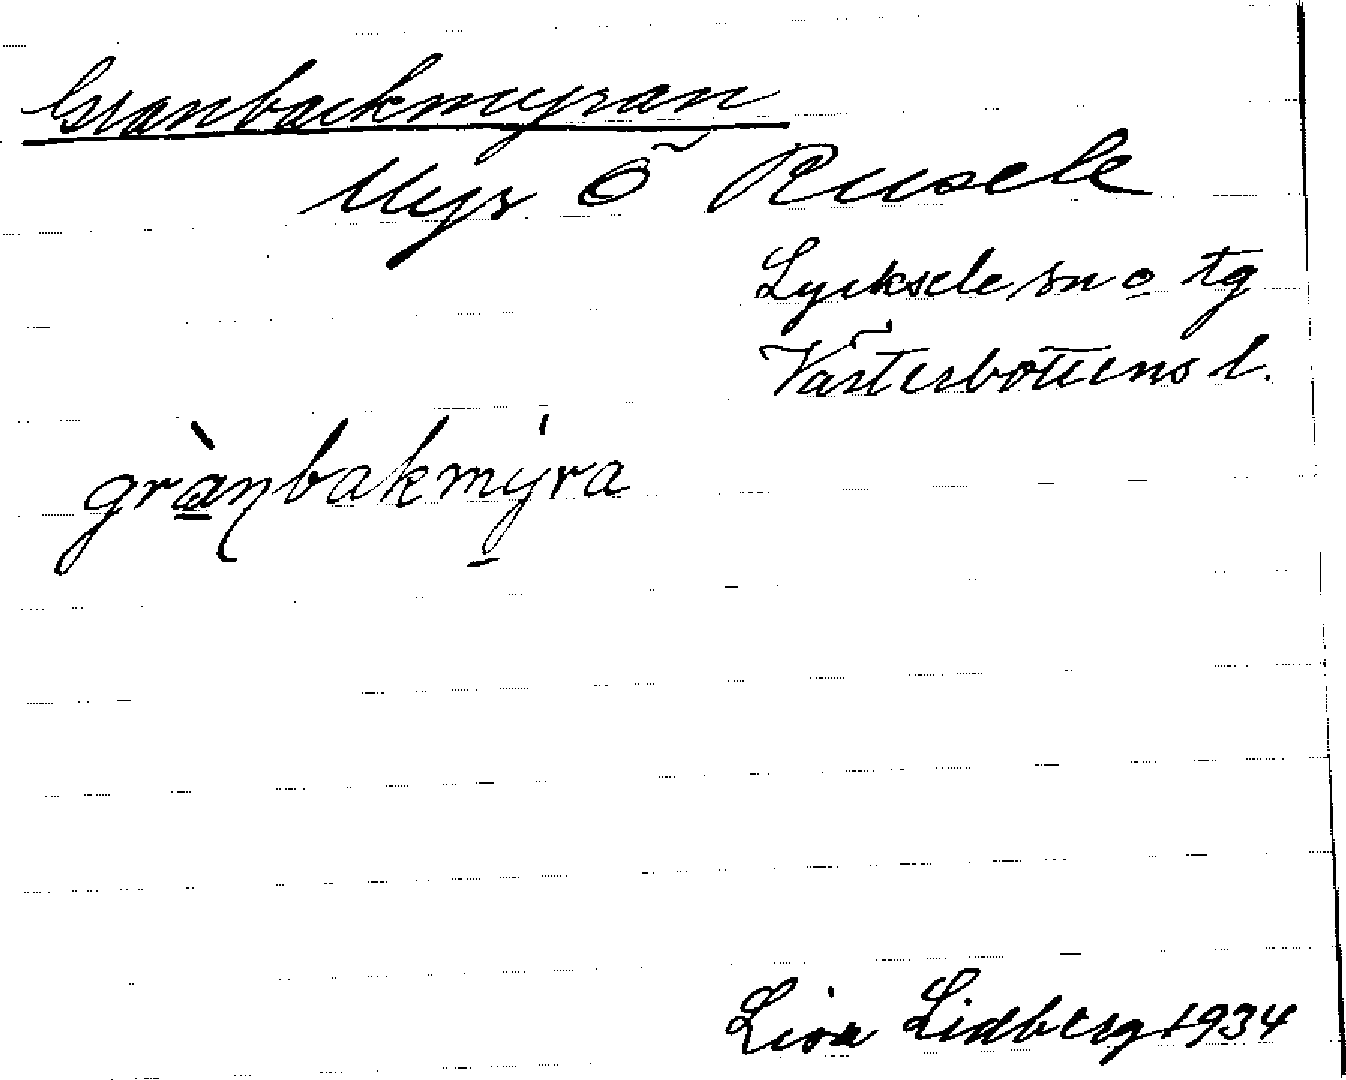 Granbackmyran
Myr Ö Rusele
Lycksele sn o tg
Västerbottens l.
grànbakmýra
Lisa Lidberg 1934